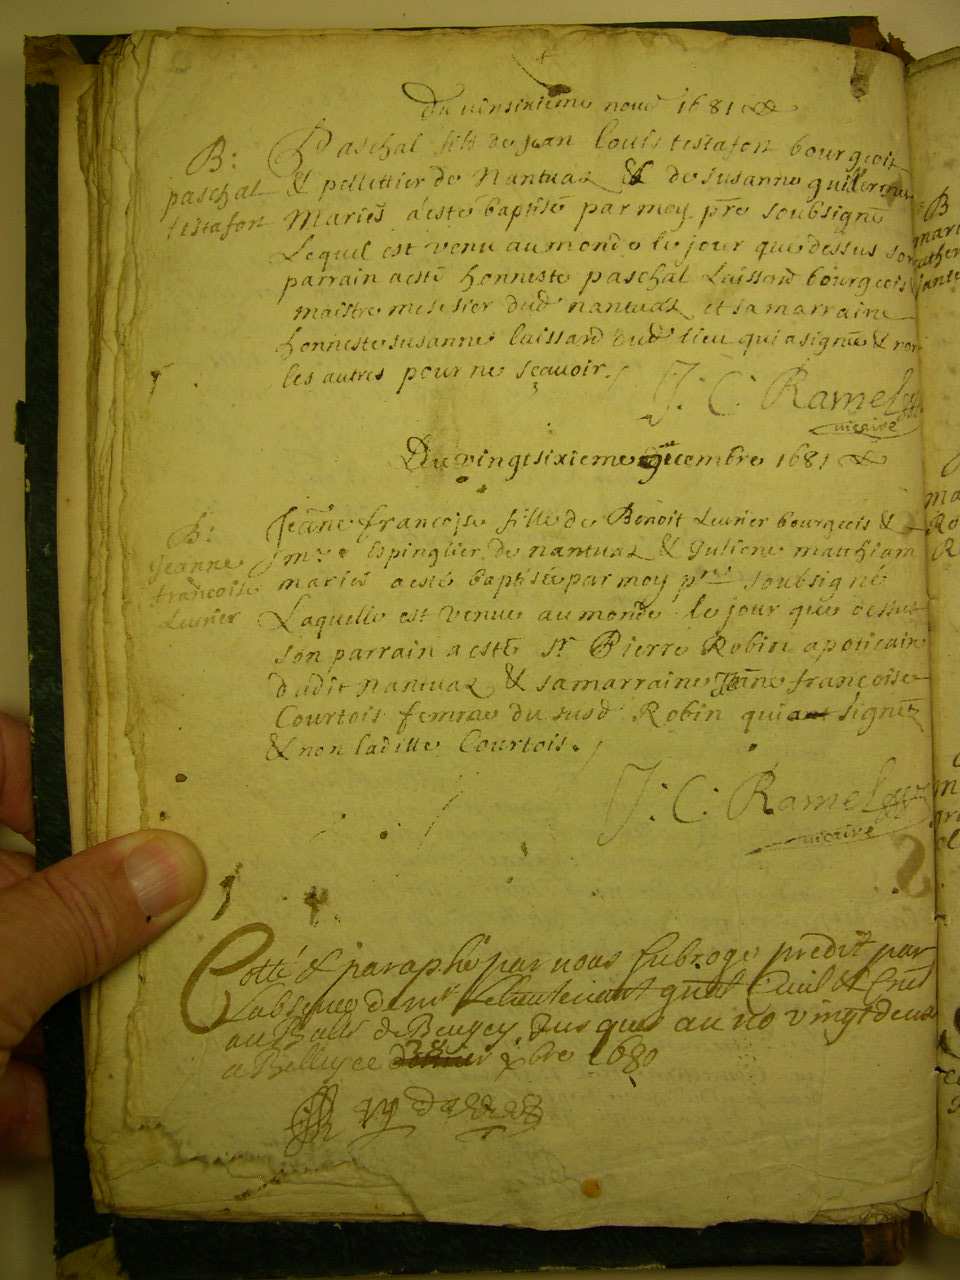 Du vinsixieme nove 1681
B:
paschal
testafort
Paschal fils de jean louis testafort bourgeois
& pellettier de Nantuaz & de susanne guillerme
Mariés a esté baptisé par moy pre soubsigné
Lequel est venu au monde le jour que dessus son
parrain a esté honneste paschal Luissard bourgeois
maistre dud nantuaz et sa marraine
honneste susanne luissard dud lieu qui a signé & non
les autres pour ne scavoir.
J: C: Ramel
vicaire
Du vingtsixieme decembre 1681
B:
Jeanne
francoise
Levrier
Jeane francoise fille de Benoit Levrier bourgeois &
me espinglier de nantuaz & Juliene matthiam
mariés a esté baptisée par moy soubsigné
Laquelle est venue au monde le jour que dessus
son parrain a esté sr Pierre Robin apoticaire
dudit nantuaz & sa marraine Jeane françoise
Courtois femme du susd Robin qui a signé
& non laditte Courtois.
J: C: Ramel
vicaire
Cotté & paraphé par nous par
L'absence de mr Le lieutenant gnal Civil &
au de Beugey Jusques au no vingt deux
a Belley ce 28 xbre 1680